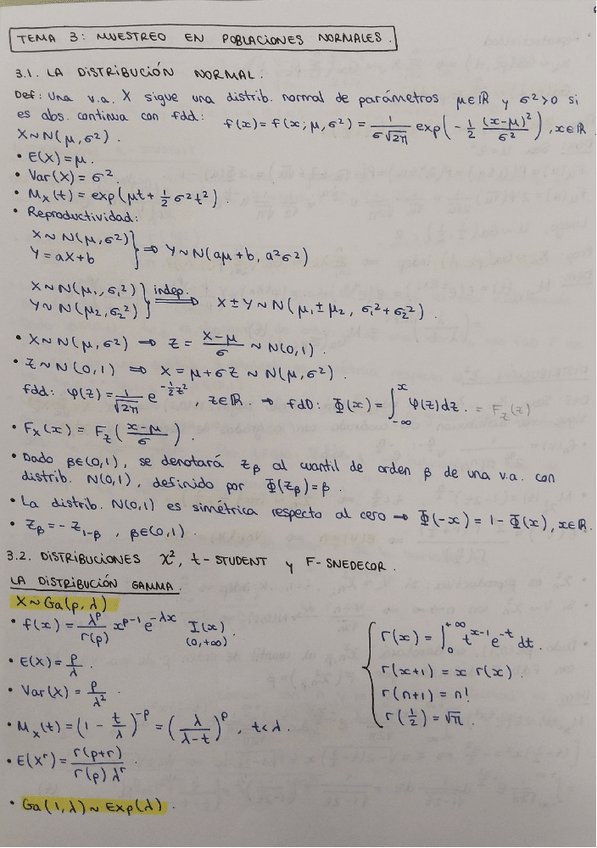 TEMA 3: MUESTREO EN POBLACIONES NORMALES.
3.1. LA DISTRIBUCIÓN NORMAL.
Def: Una v.a. X sigue una distrib. normal de parámetros μ∈ℝ y σ²>0 si
es abs. continua con fdd: f(x) = f(x; μ, σ²) = 1/(σ√2π) exp(-1/2 (x-μ)²/σ²), x∈ℝ.
X∼N(μ, σ²).
• E(X) = μ.
• Var(X) = σ².
• M_X(t) = exp(μt + 1/2 σ²t²).
• Reproductividad:
X∼N(μ, σ²)
Y = aX+b } ⇒ Y∼N(aμ+b, a²σ²)
X∼N(μ₁, σ₁²)
Y∼N(μ₂, σ₂²) } indep. ⟹ X±Y∼N(μ₁±μ₂, σ₁²+σ₂²).
• X∼N(μ, σ²) ⇒ Z = (X-μ)/σ ∼ N(0,1).
• Z∼N(0,1) ⇒ X = μ+σZ ∼ N(μ, σ²).
fdd: φ(z) = 1/√2π e^(-1/2 z²), z∈ℝ. → fdD: Φ(x) = ∫_{-∞}^{x} φ(z)dz. = F_Z(z)
• F_X(x) = F_Z((x-μ)/σ).
• Dado β∈(0,1), se denotará z_β al cuantil de orden β de una v.a. con
distrib. N(0,1), definido por Φ(z_β) = β.
• La distrib. N(0,1) es simétrica respecto al cero ⇒ Φ(-x) = 1-Φ(x), x∈ℝ.
• z_β = -z_{1-β}, β∈(0,1).
3.2. DISTRIBUCIONES χ², t-STUDENT y F-SNEDECOR.
LA DISTRIBUCIÓN GAMMA.
X∼Ga(p, λ)
• f(x) = λ^p/Γ(p) x^(p-1) e^(-λx) I(x)_(0,+∞)
• E(X) = p/λ.
• Var(X) = p/λ².
• M_X(t) = (1 - t/λ)^(-p) = (λ/(λ-t))^p, t<λ.
• E(X^r) = Γ(p+r)/(Γ(p) λ^r)
• Ga(1, λ) ∼ Exp(λ).
Γ(x) = ∫_0^{+∞} t^(x-1) e^(-t) dt.
Γ(x+1) = x Γ(x).
Γ(n+1) = n!
Γ(1/2) = √π.